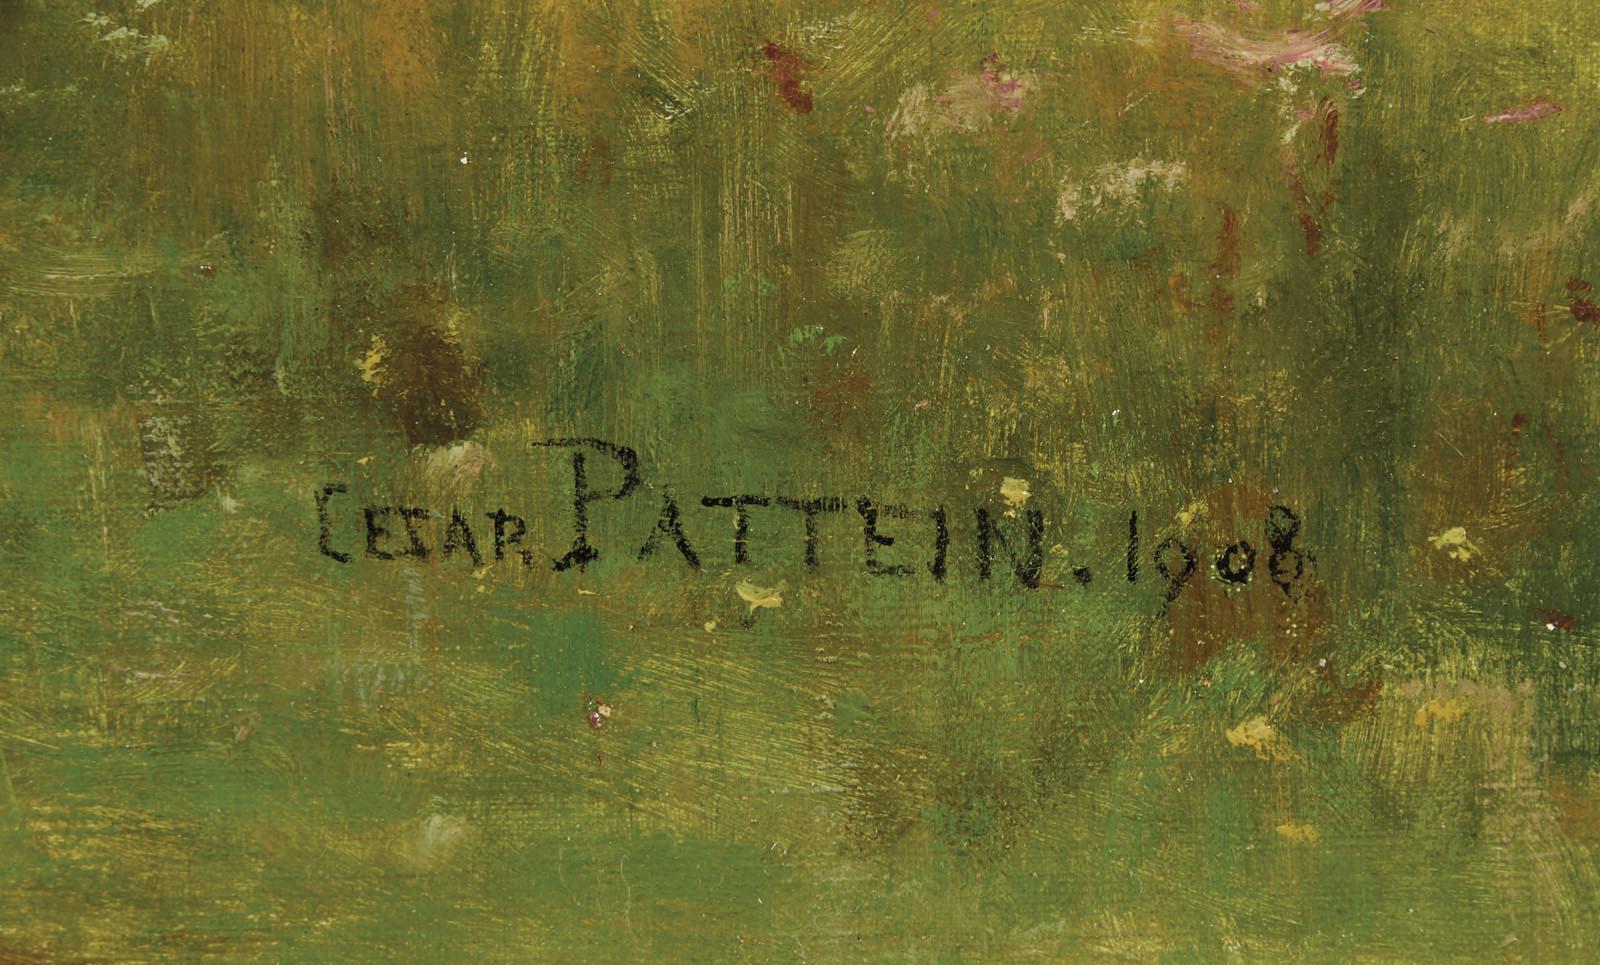 CESAR PATTEIN. 1908